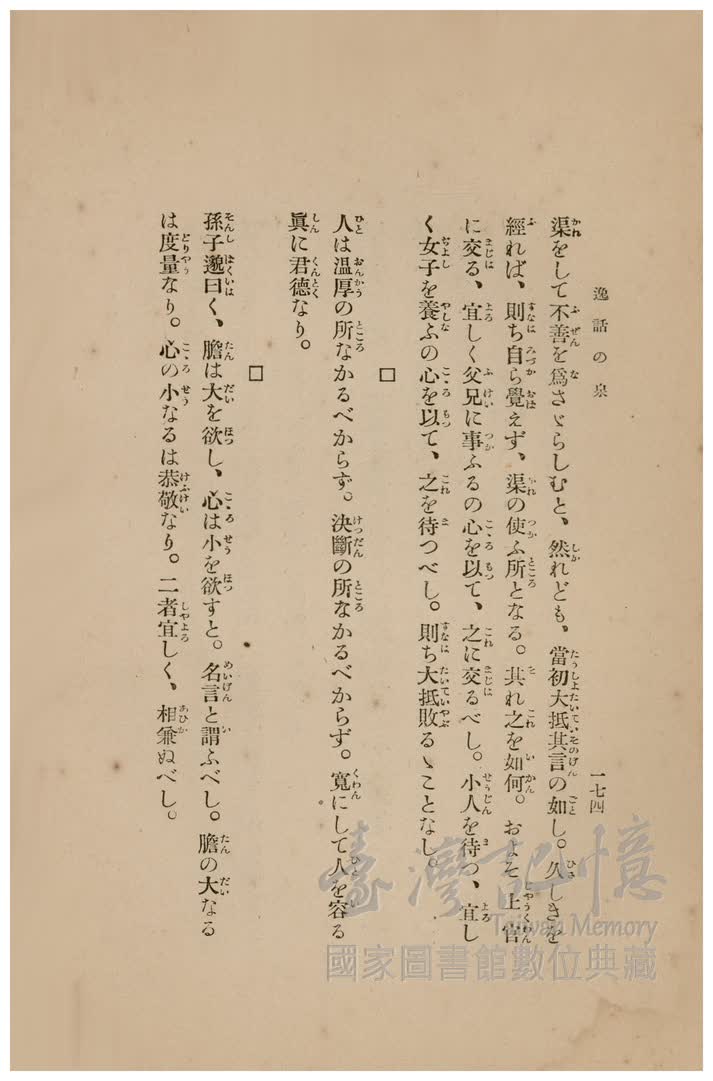 逸話の泉
一七四
渠をして不善を爲さゞらしむと、然れども、當初大抵其言の如し。久しきを
經れば、則ち自ら覺えず、渠の使ふ所となる。其れ之を如何。およそ上官
に交る、宜しく父兄に事ふるの心を以て、之に交るべし。小人を待つ、宜し
く女子を養ふの心を以て、之を待つべし。則ち大抵敗るゝことなし。
□
人は溫厚の所なかるべからず。決斷の所なかるべからず。寬にして人を容る
眞に君德なり。
□
孫子邈曰く、膽は大を欲し、心は小を欲すと。名言と謂ふべし。膽の大なる
は度量なり。心の小なるは恭敬なり。二者宜しく、相兼ぬべし。
臺灣記憶
Taiwan Memory
國家圖書館數位典藏